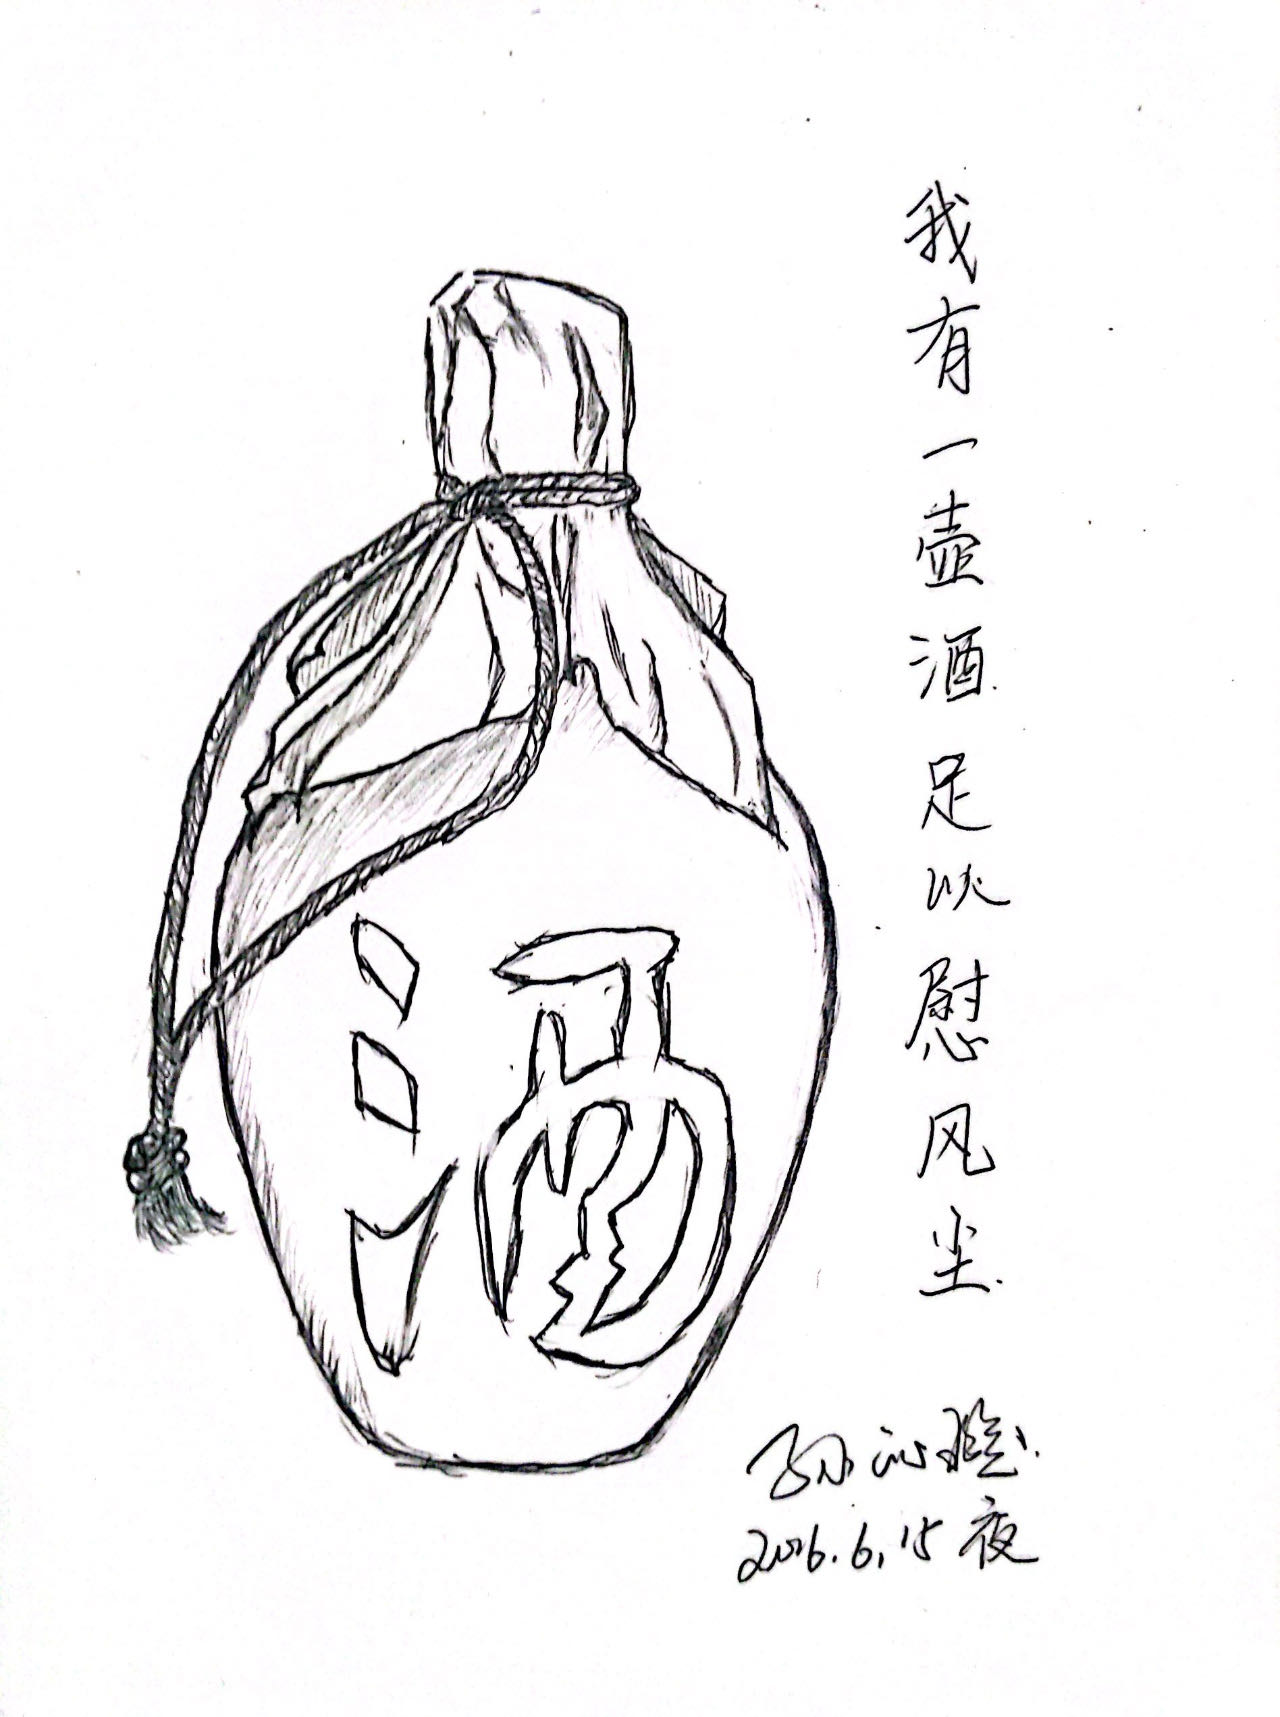 我有一壶酒足以慰风尘
酒
孙沁
2016.6.15 夜